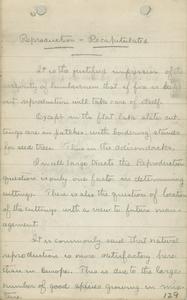 Reproduction - Recapitulated
It is the justified impression of the
majority of lumbermen that if fire is kept
out reproduction will take care of itself.
Except in the flat lake state cut
tings are in patches, with bordering stands
for seed trees. Thus in the Adirondacks.
In all large tracts the Reproduction
question is only one factor in determining
cuttings. There is also the question of location
of the cuttings with a view to future man-
agement.
It is commonly said that natural
reproduction is more satisfactory here
than in Europe. This is due to the larger
number of good species growing in mix-
ture.
129